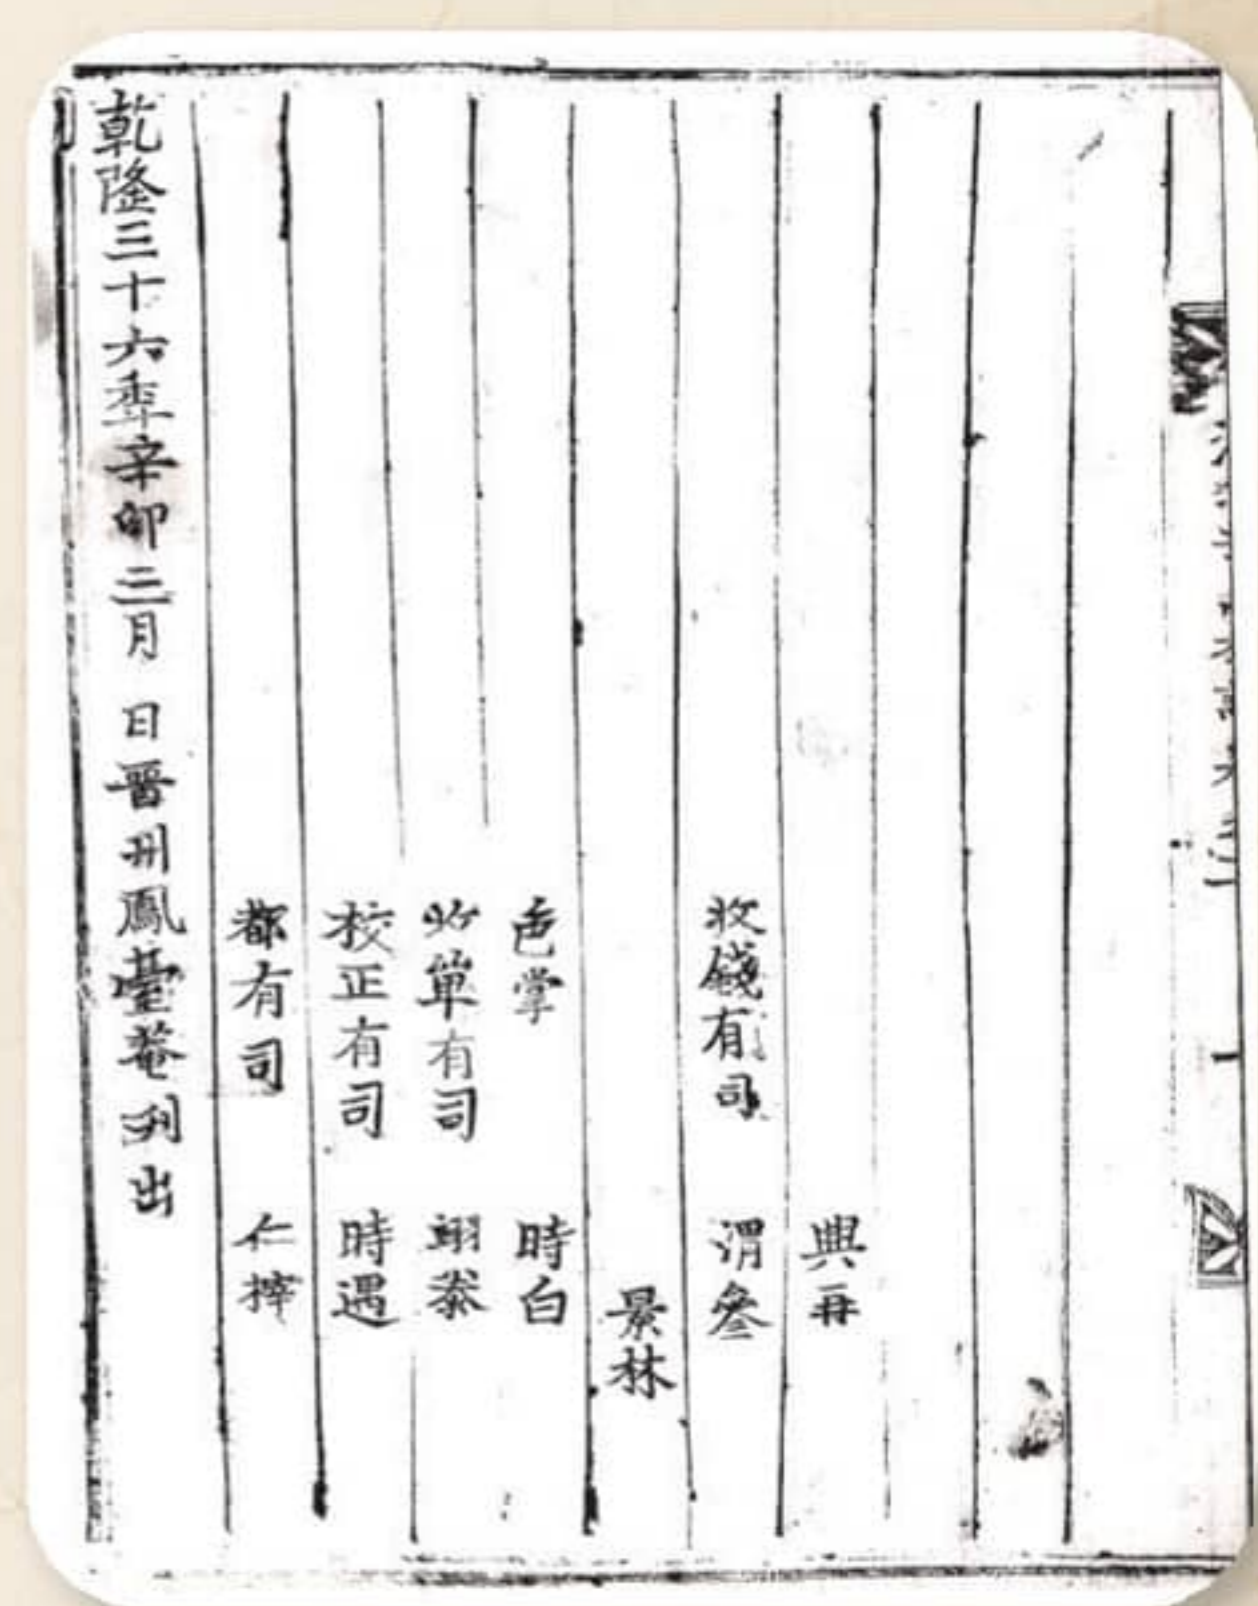 興再
收錢有司 渭叅
景林
色掌 時白
收單有司 翊泰
校正有司 時遇
都有司 仁
乾隆三十六秊辛卯三月 日晋州鳳臺菴刋出